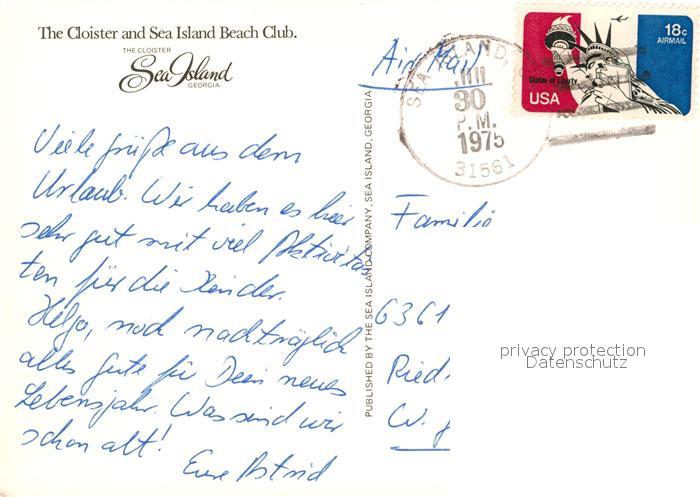 The Cloister and Sea Island Beach Club.
THE CLOISTER
Sea Island
GEORGIA
Viele Grüße aus dem
Urlaub. Wir haben es hier
sehr gut mit viel Aktivitä
ten für die Kinder.
Helga, noch nachträglich
alles Gute für Dein neues
Lebensjahr. Was sind wir
schon alt!
Eure Astrid
PUBLISHED BY THE SEA ISLAND COMPANY, SEA ISLAND, GEORGIA
Air Mail
SEA ISLAND,
30
P.M.
1975
31561
18c
AIRMAIL
Statue of Liberty
USA
Familie
6361
Ried
W.
privacy protection
Datenschutz